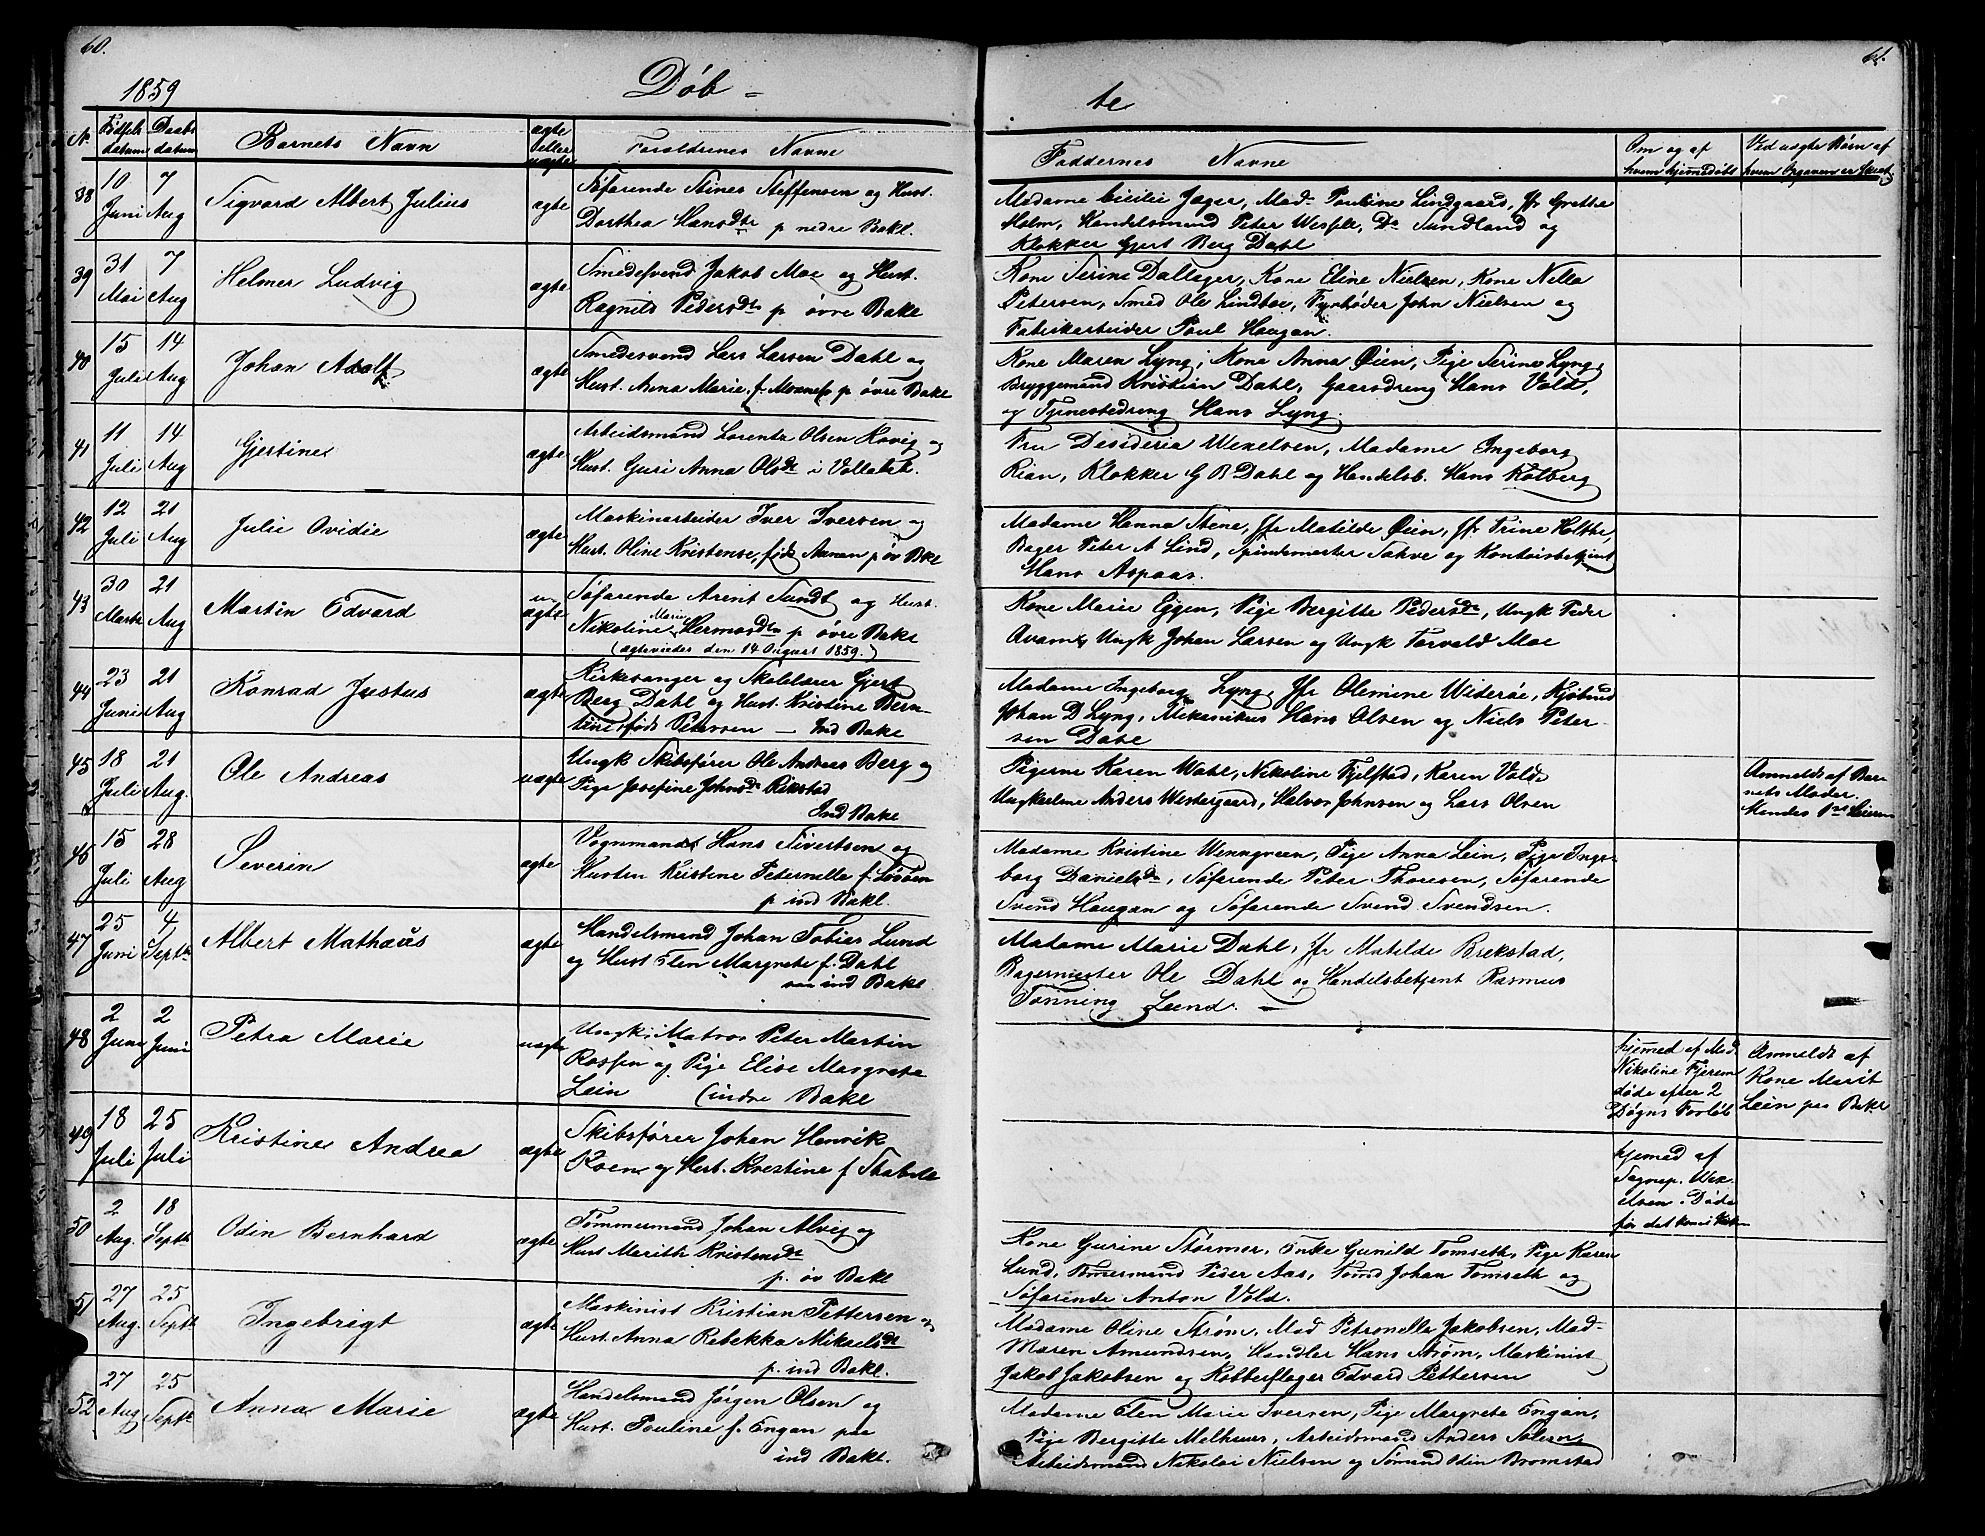 60.
61.
1859
Døb - te
N. Fødsels datum Daabs datum Barnets Navn ægte eller uægte Forældrenes Navne
Faddernes Navne Om og af hvem hjemedøbt Ved uægte Børn af hvem Opgaven er skeet
38 10 Juni 7 Aug Sigvard Albert Julius ægte
Søfarende Steffensen og Hust.
Dorthea Hansdtr p nedre Bakl.
Madame Cicilie Jæger, Mad. Pauline Lindgaard, Jfr Grethe
Holm, Handelsmand Peter Wesple, Do Sundland og
Klokker Gjert Berg Dahl
39 31 Mai 7 Aug Helmer Ludvig ægte
Smedesvend Jakob Moe og Hust.
Ragnild Pedersdtr p øvre Bakl
Kone Serine Dallager, Kone Eline Nielsen, Kone Nilla
Petersen, Smed Ole Lindboe, Fyrbøder John Nielsen og
Fabrikarbeider Poul Haugan.
40 15 Juli 14 Aug Johan Adolf ægte
Smedesvend Lars Larsen Dahl og
Hust. Anna Marie f. p øvre Bakl
Kone Maren Lyng, Kone Anna Øien, Pige Serine Lyng,
Bryggemand Kristian Dahl, Gaarddreng Hans Vold,
og Tjenestedreng Hans Lyng.
41 11 Juli 14 Aug Gjertine ægte
Arbeidsmand Lorentz Olsen Hovig og
Hust. Guri Anna Olsdtr i Vollabak.
Fru Desideria Wexelsen, Madame Ingeborg
Rian, Klokker G B Dahl og Handelsb. Hans Kolberg
42 12 Juli 21 Aug Julie Ovidie ægte
Maskinarbeider Iver Iversen og
Hust. Oline Kristense, født Aunan p øv Bakl
Madame Hanna Stene, Jfr Matilde Øien, Jfr Trine Holthe,
Bager Peter A Lind, Spindemester Sakve og Kontoirbetjent
Hans Aspaas.
43 30 Marts 21 Aug Martin Edvard u-ægte
Søfarende Arent Sundt og Hust.
Nikoline Marie Hermosdtr p øvre Bakl
(ægteviedes den 14 August 1859.)
Kone Marie Eggen, Pige Bergitte Pedersdtr, Ungk Peder
Qvam, Ungk Johan Larsen og Ungk Torvald Moe
44 23 Juni 21 Aug Konrad Justus ægte
Kirkesanger og Skolelærer Gjert
Berg Dahl og Hust. Kristine Bern-
tine født Petersen - Ind Bakl
Madame Ingeborg Lyng, Jfr Olemine Widerøe, Kjøbmd
Johan D Lyng, Mekanikus Hans Olsen og Niels Peter-
sen Dahl
45 18 Juli 21 Aug. Ole Andreas uægte
Ungk Skibsfører Ole Andreas Berg og
Pige Josefine Johnsdtr Rikstad
Ind Bakl
Pigerne Karen Wahl, Nikoline Fjelstad, Karen Vold
Ungkarlene Anders Westergaard, Halvor Johnsen og Lars Olsen
Anmeldt af Bar-
nets Moder.
Mandes 1ste Leierm
46 15 Juli 28 Aug Severin ægte
Vognmand Hans Sivertsen og
Husten Kristine Peternella f.
p ind Bakl.
Madame Kristine Wenngreen, Pige Anna Lein, Pige Inge-
borg Danielsdtr, Søfarende Peter Thoresen, Søfarende
Svend Haugan og Søfarende Svend Svendsen.
47 25 Juni 4 Septbr Albert Mathæus ægte
Handelsmand Johan Tobias Lund
og Hust Elen Margrete f. Dahl
ind Bakl
Madame Marie Dahl, Jfr Matilde Brekstad,
Bagermester Ole Dahl og Handelsbetjent Rasmus
Tønning Lund. -
48 2 Juni 2 Juni Petra Marie uægte
Ungk. Matros Peter Martin
og Pige Elise Margrete
Lein (indre Bakl
hjemed af Mad.
Nikoline Fjerem
døde efter 2
Døgns Forløb
Anmeldt af
Kone Marit
Lein paa Bakl
49 18 Juli 25 Juli Kristine Andrea ægte
Skibsfører Johan Henrik
Koen og Hust. Kristine f
hjemed af
Sognep. Wex-
elsen. Døde
før det kom i Kirke
50 2 Aug. 18 Septbr Odin Bernhard ægte
Tømmermand Johan Alvig og
Hust Marith Kristensdtr
p. øv Bakl
Kone Gurine Størmer, Enke Gunild Tomseth, Pige Karen
Lund, Tømmermand Peder Aas, Tømd Johan Tomseth og
Søfarende Anton Vold.
51 27 Aug. 25 Septbr Ingebrigt ægte
Maskinist Kristian Pettersen og
Hust. Anna Rebekka Mikaelsdtr
p. ind Bakl.
Madame Oline Strøm, Mad Petronella Jakobsen, Mad-
Maren Amundsen, Handler Hans Strøm, Maskinist
Jakob Jakobsen og Kobberslager Edvard Pettersen
52 27 Aug 25 Septbr Anna Marie ægte
Handelsmand Jørgen Olsen og
Hust. Pauline f. Engan paa
ind Bakl.
Madame Elen Marie Iversen, Pige Margrete Engan,
Pige Bergitte Melhuus, Arbeidsmand Anders Solem,
Arbeidsmand Nikolai Nielsen og Sømand Odin Bromstad